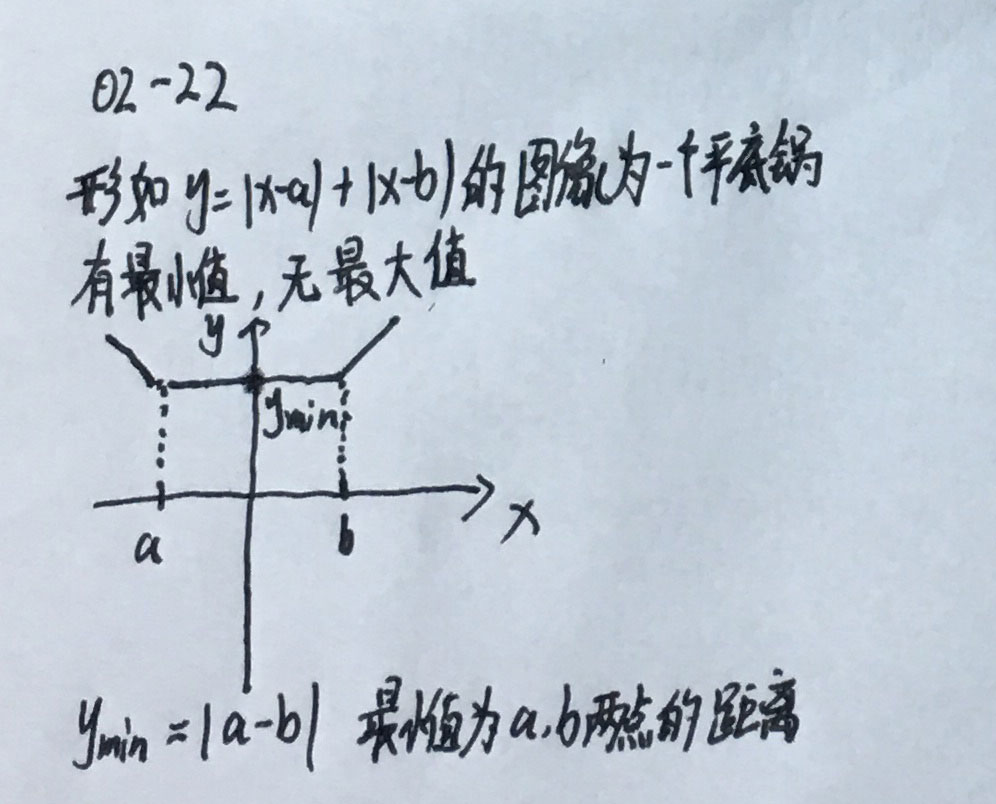 02-22
形如 y=|x-a|+|x-b|的图象为一个平底锅
有最小值,无最大值
y
ymin
x
a
b
ymin=|a-b| 最小值为a,b两点的距离